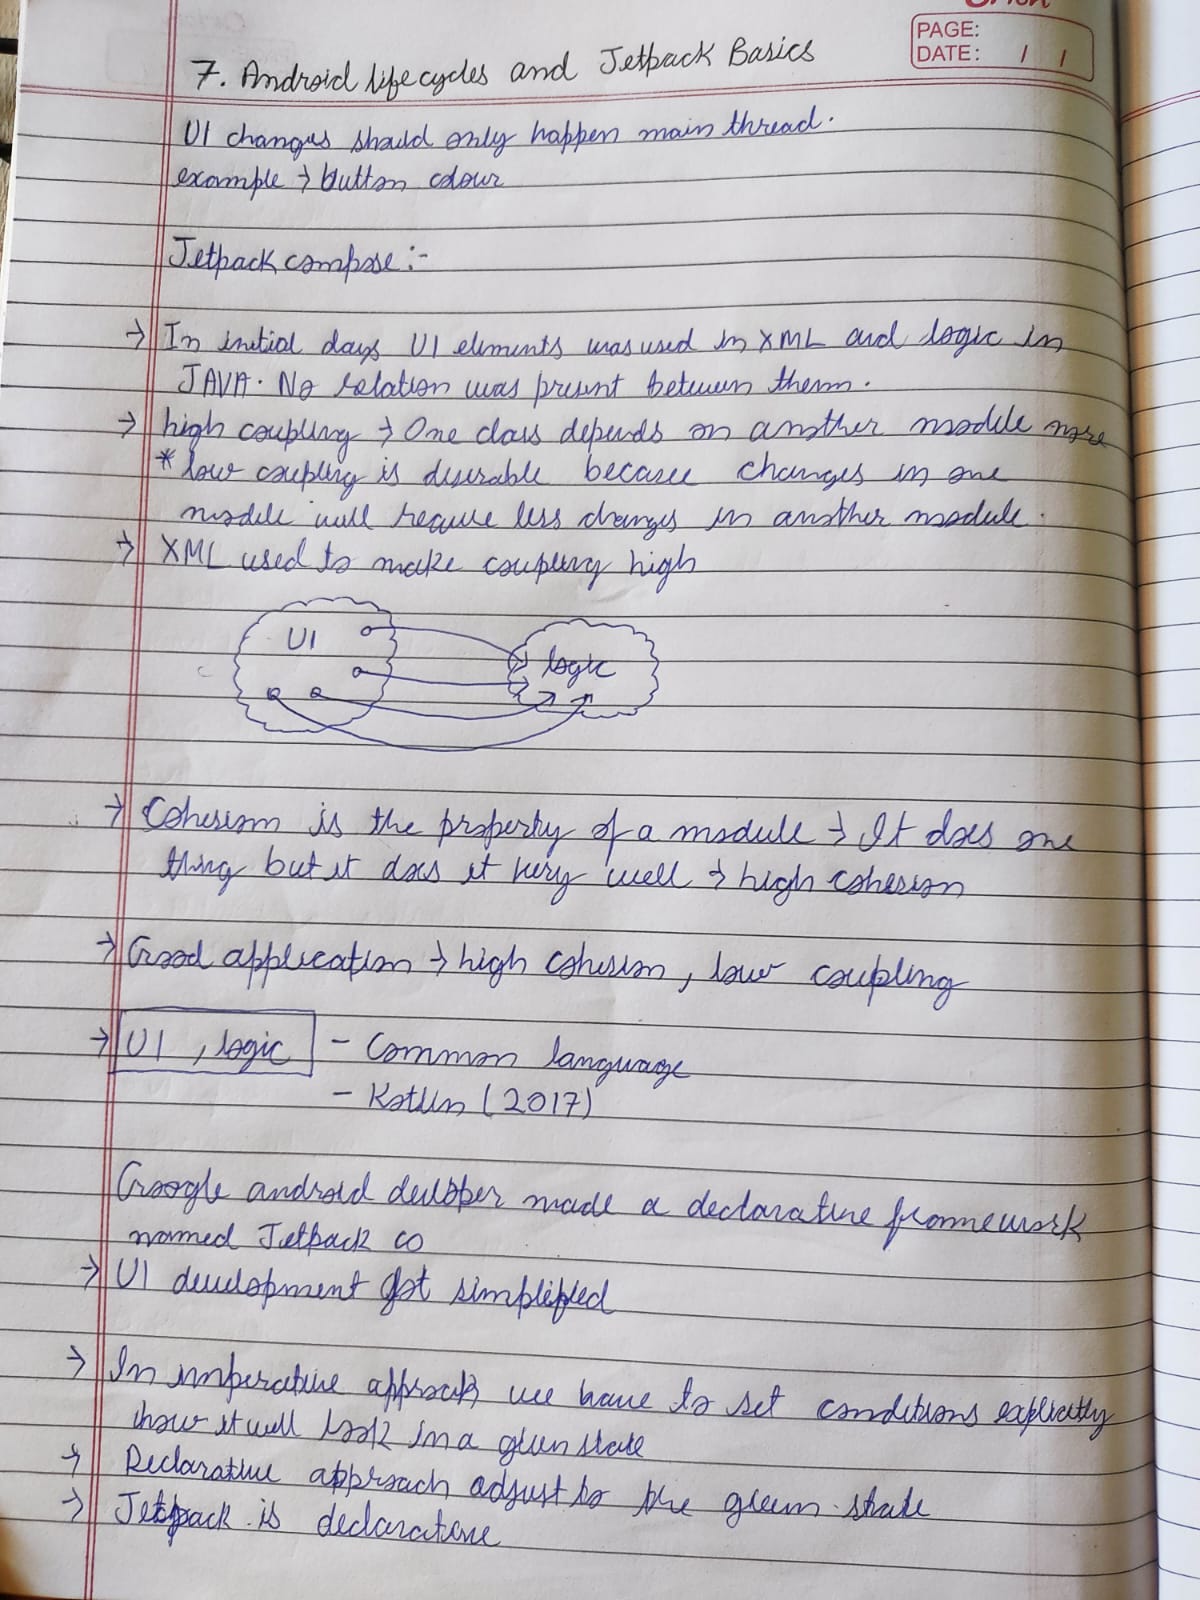 PAGE:
DATE: / /
7. Android lifecycles and Jetpack Basics
UI changes should only happen main thread.
example → button colour
Jetpack compose :-
→ In initial days UI elements was used in XML and logic in
JAVA. No relation was present between them.
→ high coupling → One class depends on another module more
* low coupling is desirable because changes in one
module will require less changes in another module.
→ XML used to make coupling high
UI
logic
→ Cohesion is the property of a module → It does one
thing but it does it very well → high cohesion
→ Good application → high cohesion, low coupling
→ UI , logic - Common language
- Kotlin (2017)
Google android developer made a declarative framework
named Jetpack co
→ UI development got simplified
→ In imperative approach we have to set conditions explicitly
how it will look in a given state
→ Declarative approach adjust to the given state
→ Jetpack is declarative